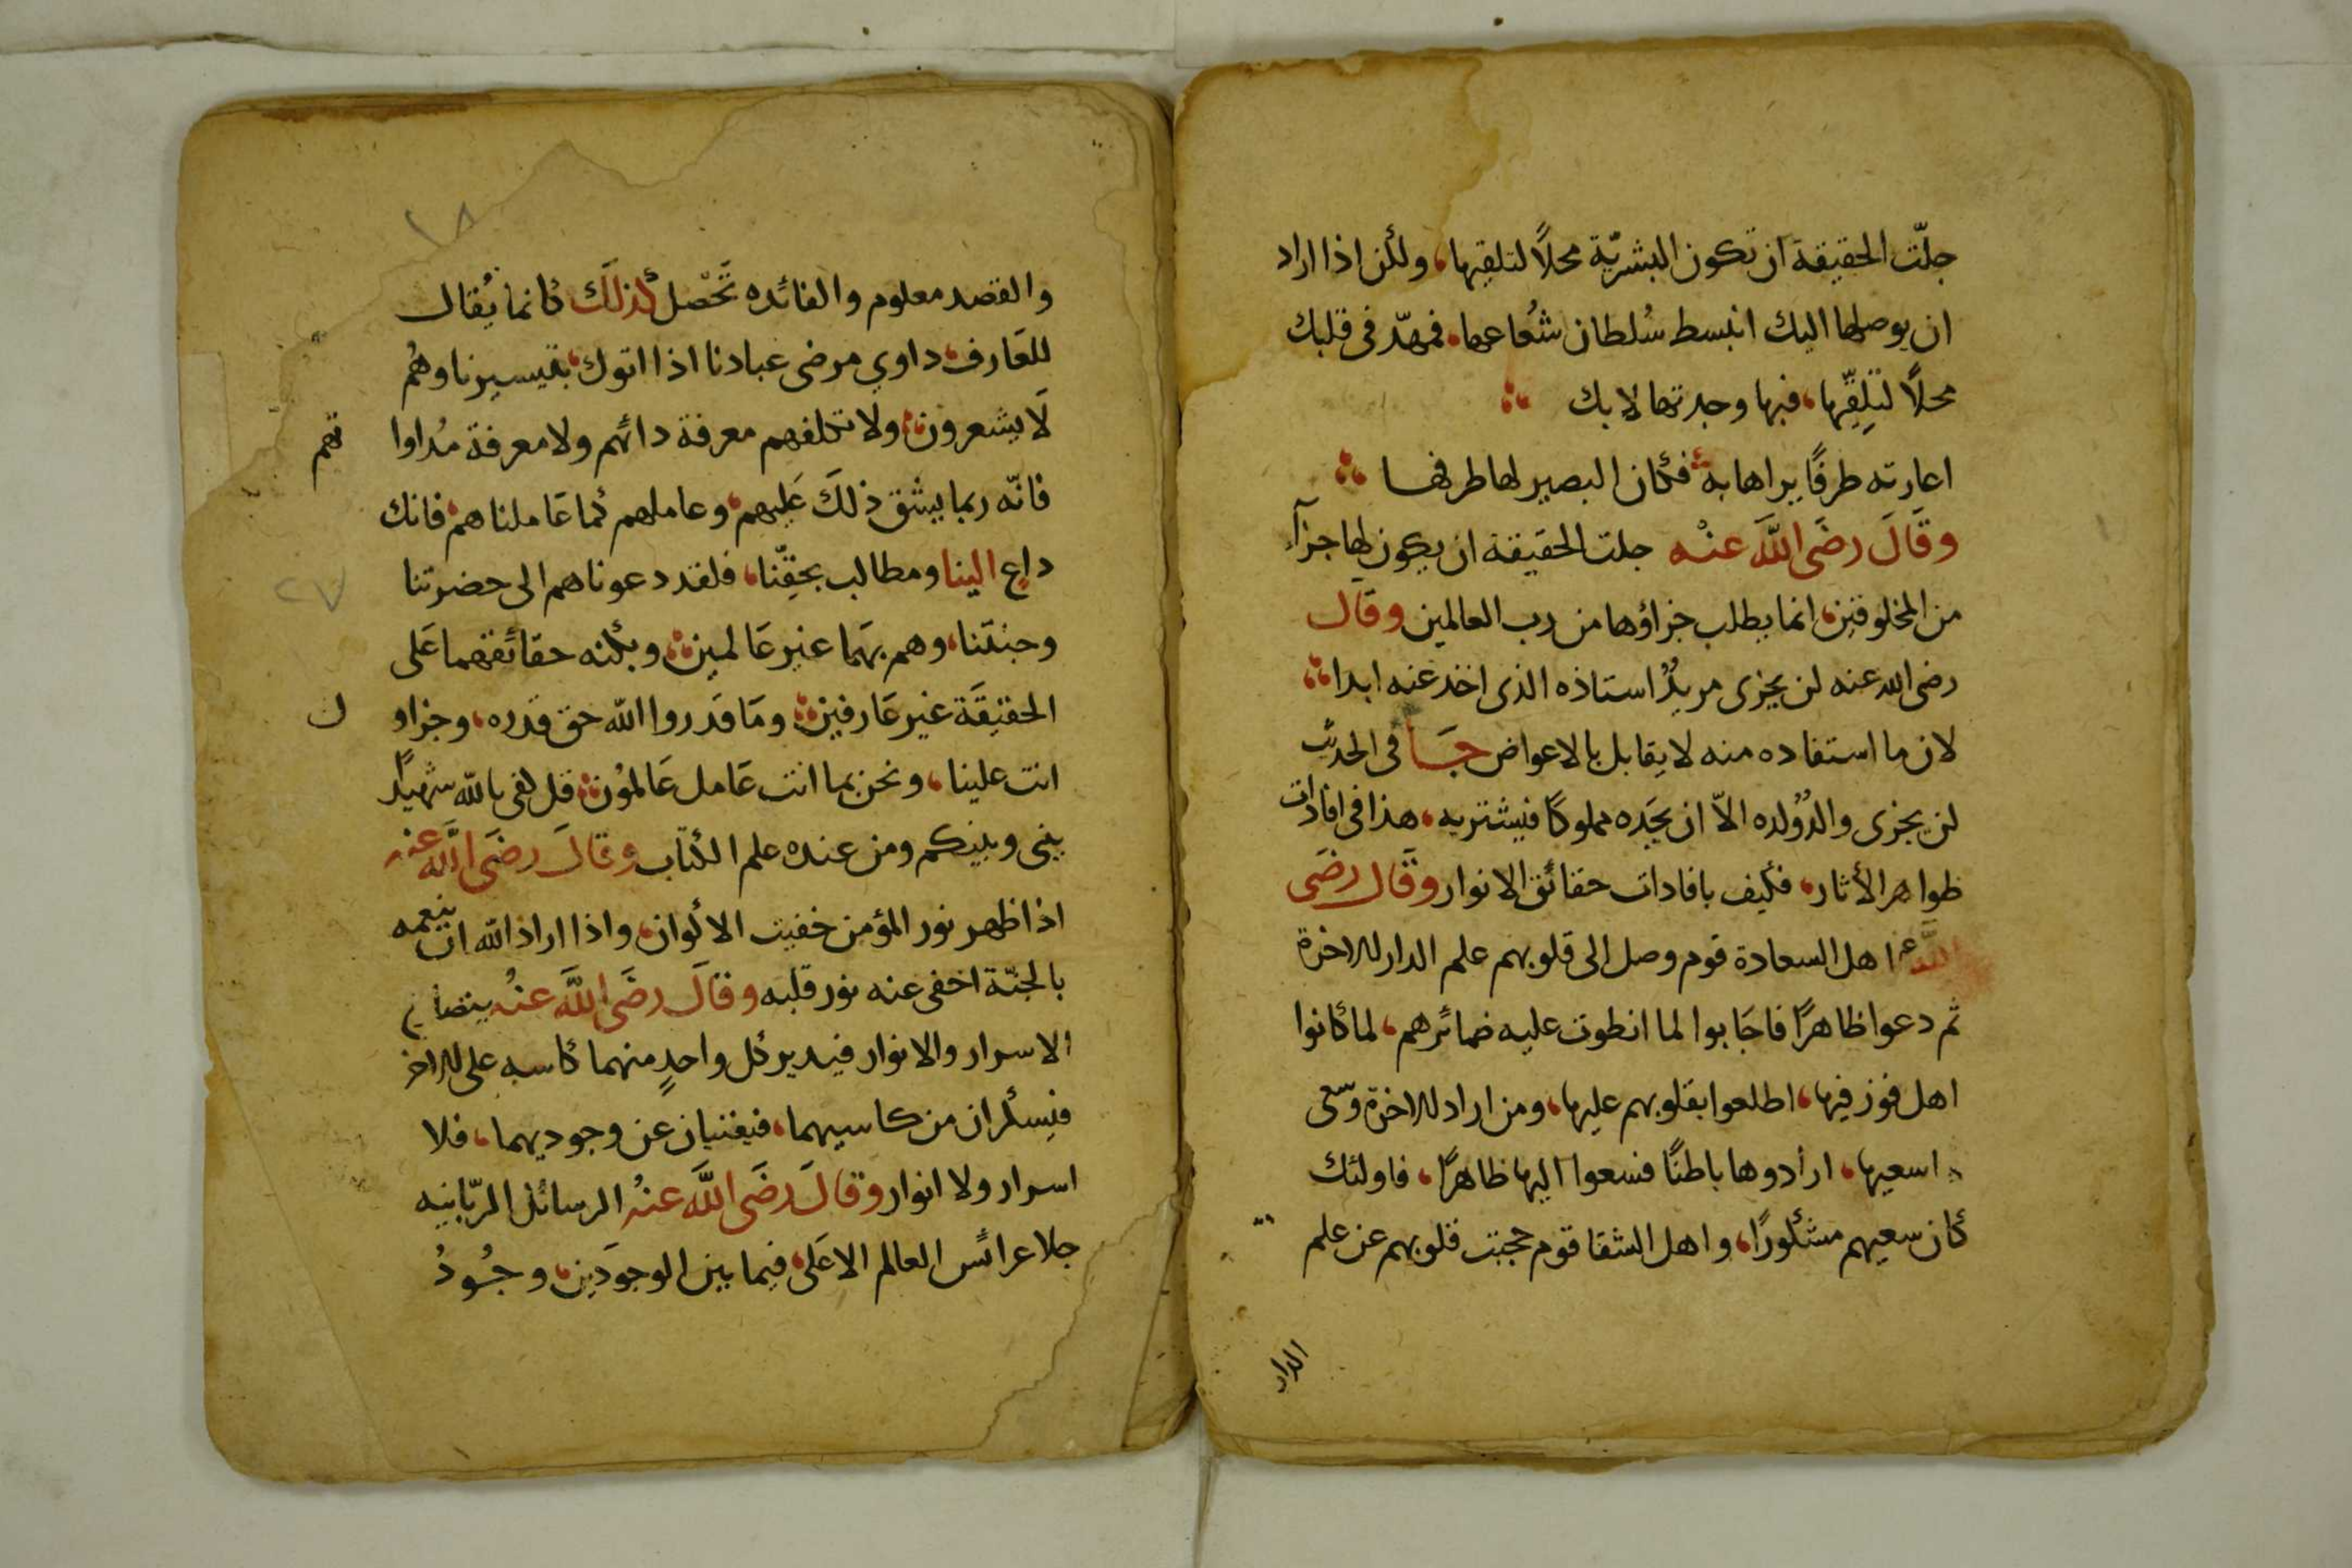 جلّت الحقيقة ان تكون البشريّة محلاً لتلقيها، ولكن اذا اراد
ان يوصلها اليك انبسط سُلطان شُعاعها، فمهّد فى قلبك
محلاً لتلقّيها، فبها وجدتها لا بك
اعارته طرفًا يراها به فكان البصير لها طرفها
وقَالَ رضَى اللَّه عنْه جلت الحقيقة ان يكون لها جزآء
من المخلوقين، انما يطلب جزاؤها من رب العالمين وقال
رضى الله عنه لن يجزى مريدٌ استاذه الذى اخذ عنه ابدا
لان ما استفاده منه لا يقابل بالاعواض جَا فى الحديث
لن يجزى والدٌ ولده الاّ ان يجَده مملوكًا فيشتريه، هذا فى افادات
ظواهر الأثار، فكيف بافادات حقائق الانوار وقَال رضَى
اللَّه عنه اهل السعادة قوم وصل الى قلوبهم علم الدار الاخرة
ثم دعوا ظاهرًا فاجَابوا لما انطوت عليه ضمائرهم، لما كانوا
اهل فوز فيها، اطلعوا بقلوبهم عليها، ومن اراد الاخرة وسّعى
لها سعيها، ارادوها باطنًا فسعوا اليها ظاهرًا، فاولئك
كان سعيهم مشكورًا، واهل الشقا قوم حجبت قلوبهم عن علم
الدار
١٨
والقصد معلوم والفائده تَحْصل كذلَك كانما يُقال
للعَارف، داوي مرضى عبادنا اذا اتوك، بتيسيرنا وهُم
لَا يشعرون، ولا تكلفهم معرفة دائهم ولا معرفة مُداوا
تهم
فانّه ربما يشق ذلكَ عَليهم، وعاملهم كما عَاملناهم، فانك
داعٍ الينا ومطالب بحقّنا، فلقد دعوناهم الى حضرتنا
٢٧
وجنتَنا، وهم بهَما غير عَالمين، وبكنه حقائقهما عَلى
الحقيقَة غير عَارفين، ومَا قدَروا اللّه حق قدره، وجزاو
ك
انت علينا، ونحن بما انت عَامل عَالمُون، قل كفى باللّه شهيدًا
بينى وبينكم ومن عنده علم الكتاب وقالَ رضَى اللَّه عنه
اذا ظهر نور المؤمن خفيت الاكوان، واذا اراد اللّه ان ينعمه
بالجنّة اخفى عنه نور قلبه وقالَ رضَى اللَّه عنُه
الاسرار والانوار فيدير كل واحدٍ منهما كاسه على الاخر
فيسكران من كاسيهما، فيفنيان عن وجوديهما، فلا
اسرار ولا انوار وقالَ رضَى اللَّه عنْه الرسائل الربّانيه
جلا عرائس العالم الاعَلى، فيما بين الوجودَين، وجُودُ